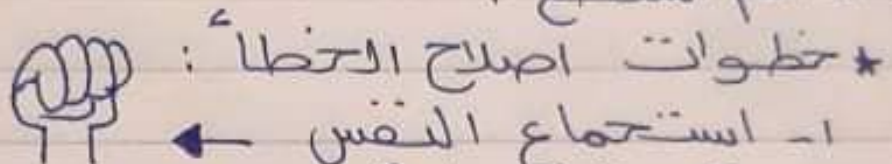 * خطوات اصلاح الخطأ :
١- استجماع النفس